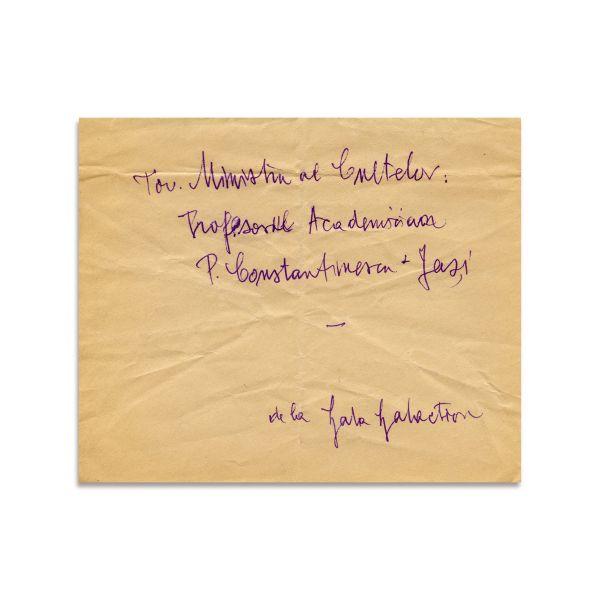 Tov. Ministru al Cultelor:
Profesorul Academician
P. Constantinescu-Iași
—
de la Gala Galaction